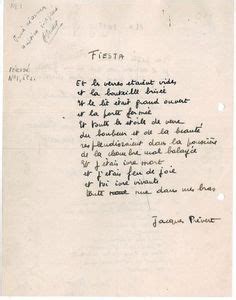 FIESTA
Et les verres étaient vides
et la bouteille brisée
Et le lit était grand ouvert
et la porte fermée
Et toutes les étoiles de verre
du bonheur et de la beauté
resplendissaient dans la poussière
de la chambre mal balayée
Et j'étais ivre mort
et j'étais feu de joie
et toi ivre vivante
toute nue dans mes bras
Jacques Prévert